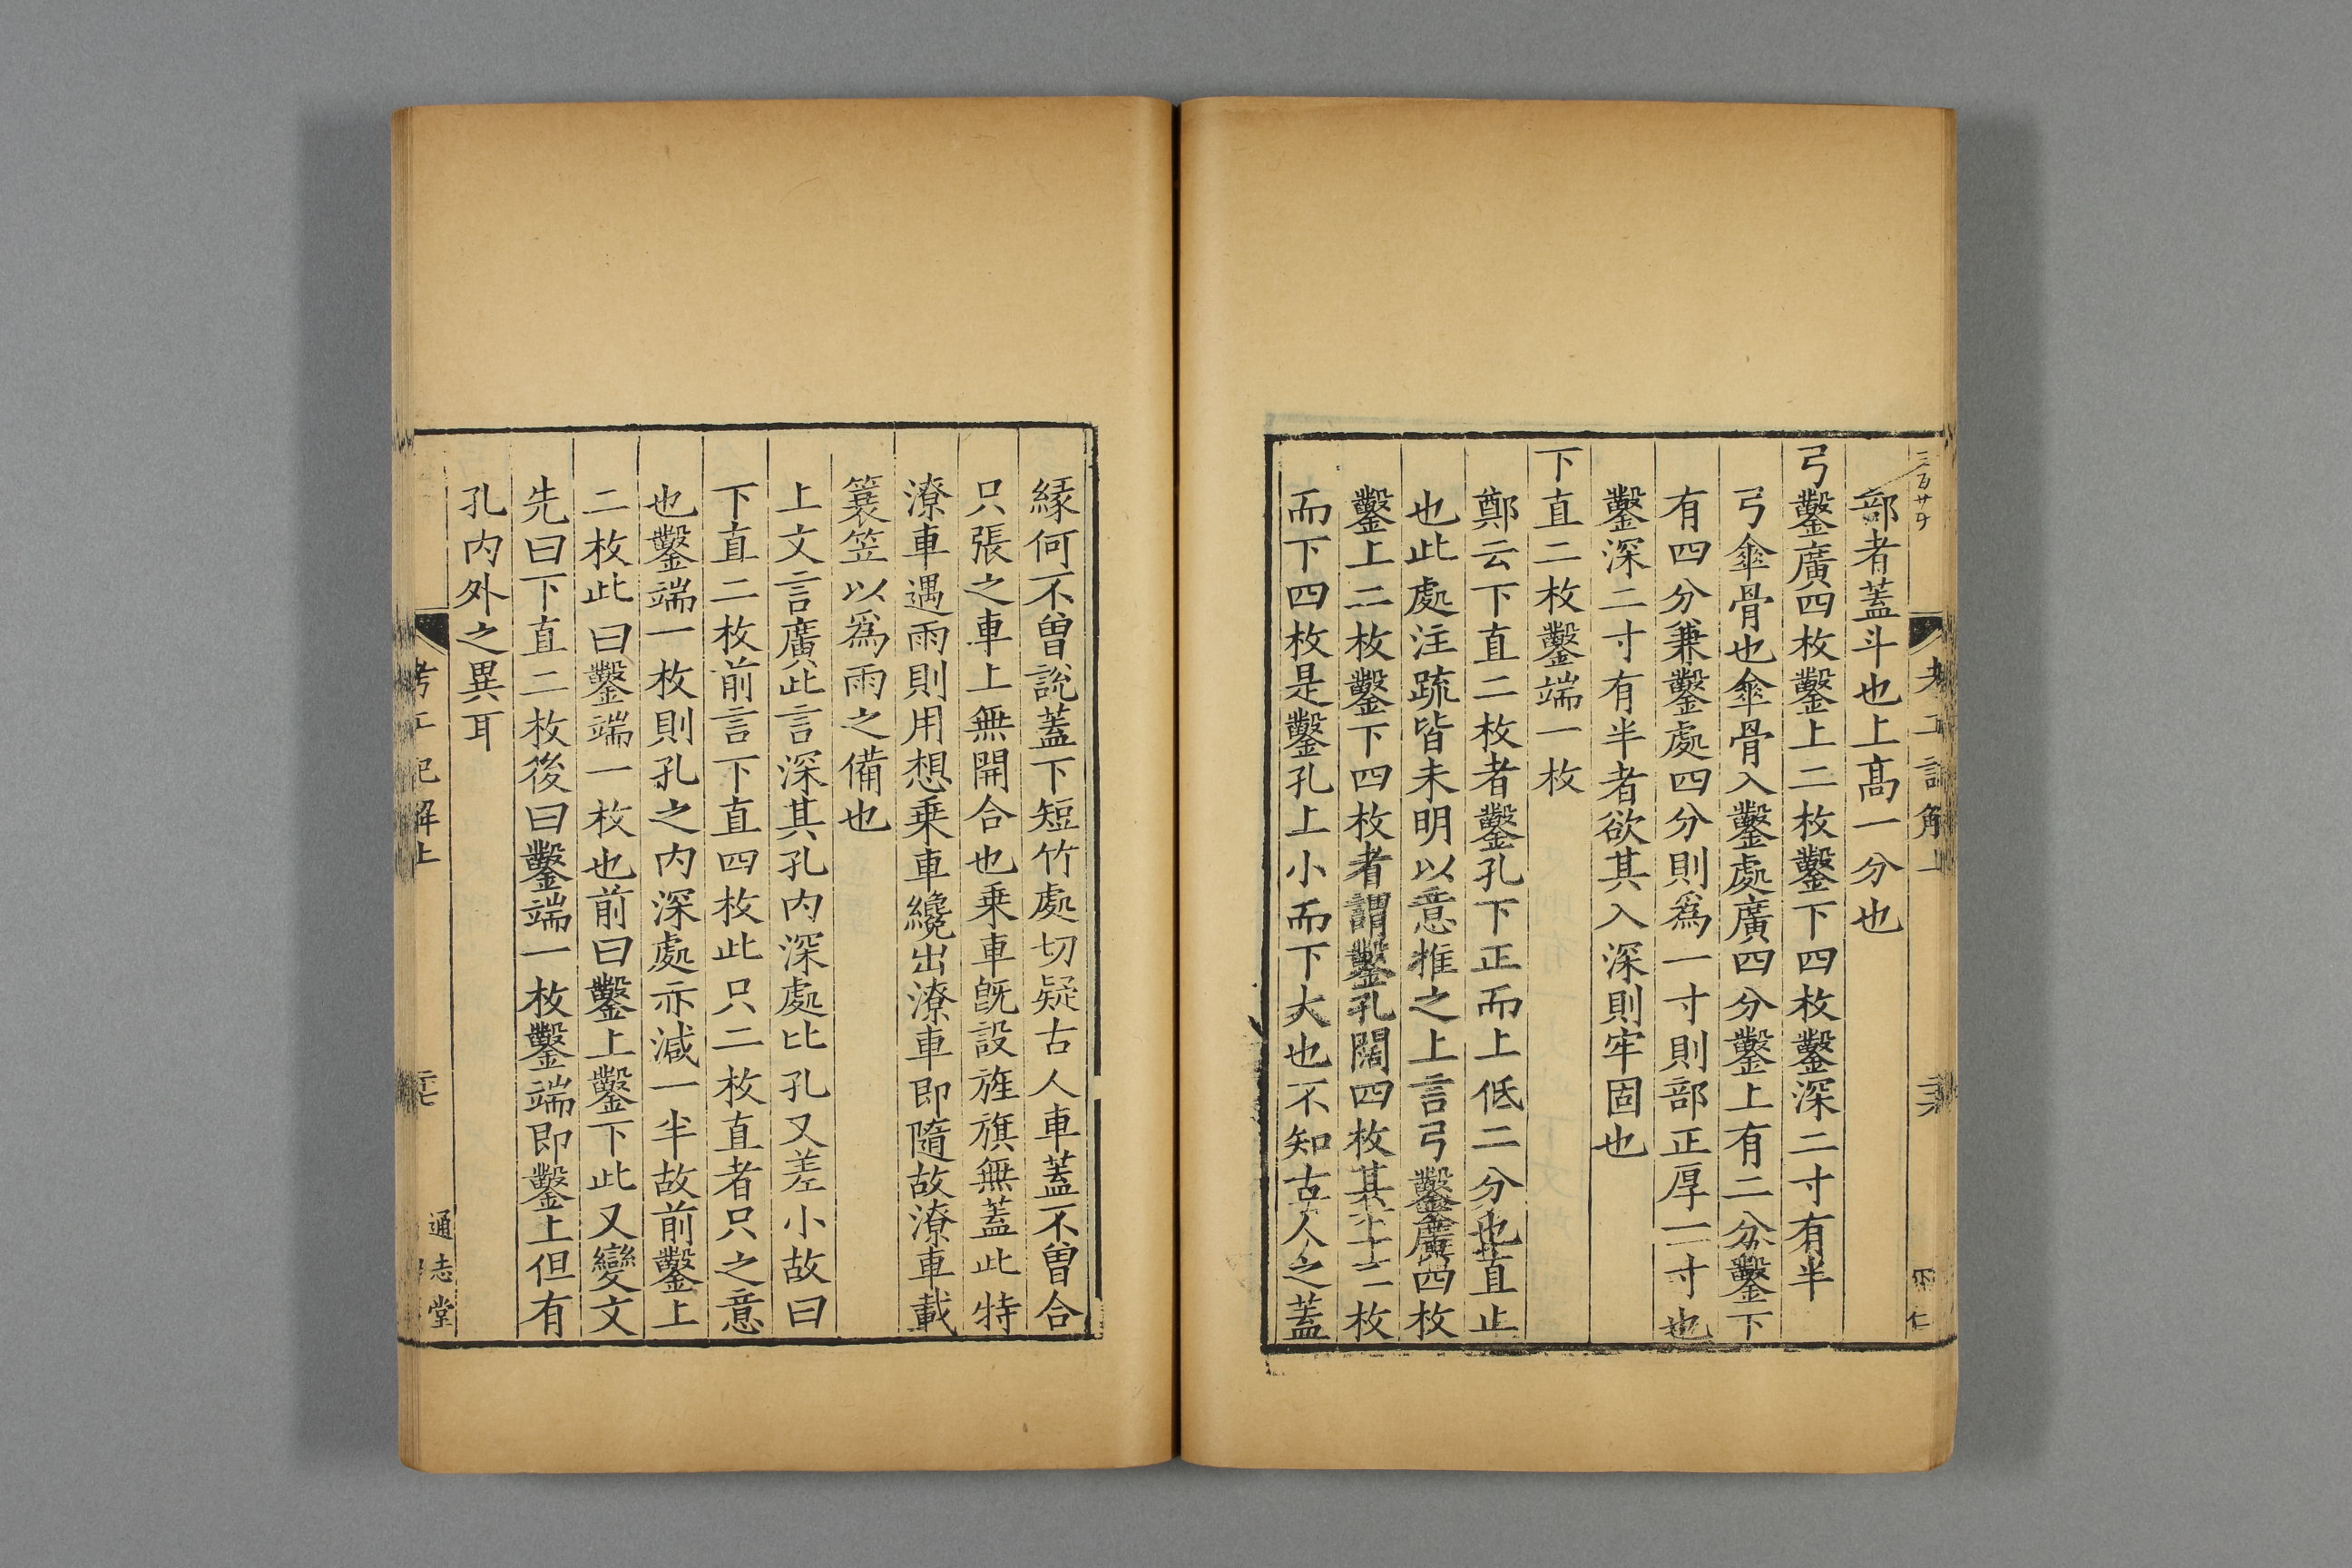 部者蓋斗也上高一分也
弓鑿廣四枚鑿上二枚鑿下四枚鑿深二寸有半
弓傘骨也傘骨入鑿處廣四分鑿上有二分鑿下
有四分兼鑿處四分則爲一寸則部正厚一寸也
鑿深二寸有半者欲其入深則牢固也
下直二枚鑿端一枚
鄭云下直二枚者鑿孔下正而上低二分也直止
也此處注疏皆未明以意推之上言弓鑿廣四枚
鑿上二枚鑿下四枚者謂鑿孔闊四枚其上二枚
而下四枚是鑿孔上小而下大也不知古人之蓋
緣何不曾說蓋下短竹處切疑古人車蓋不曾合
只張之車上無開合也乗車旣設旌旗無蓋此特
潦車遇雨則用想乗車纔出潦車即隨故潦車載
簑笠以爲雨之備也
上文言廣此言深其孔内深處比孔又差小故曰
下直二枚前言下直四枚此只二枚直者只之意
也鑿端一枚則孔之内深處亦減一半故前鑿上
二枚此曰鑿端一枚也前曰鑿上鑿下此又變文
先曰下直二枚後曰鑿端一枚鑿端即鑿上但有
孔内外之異耳
考工記解上
通志堂